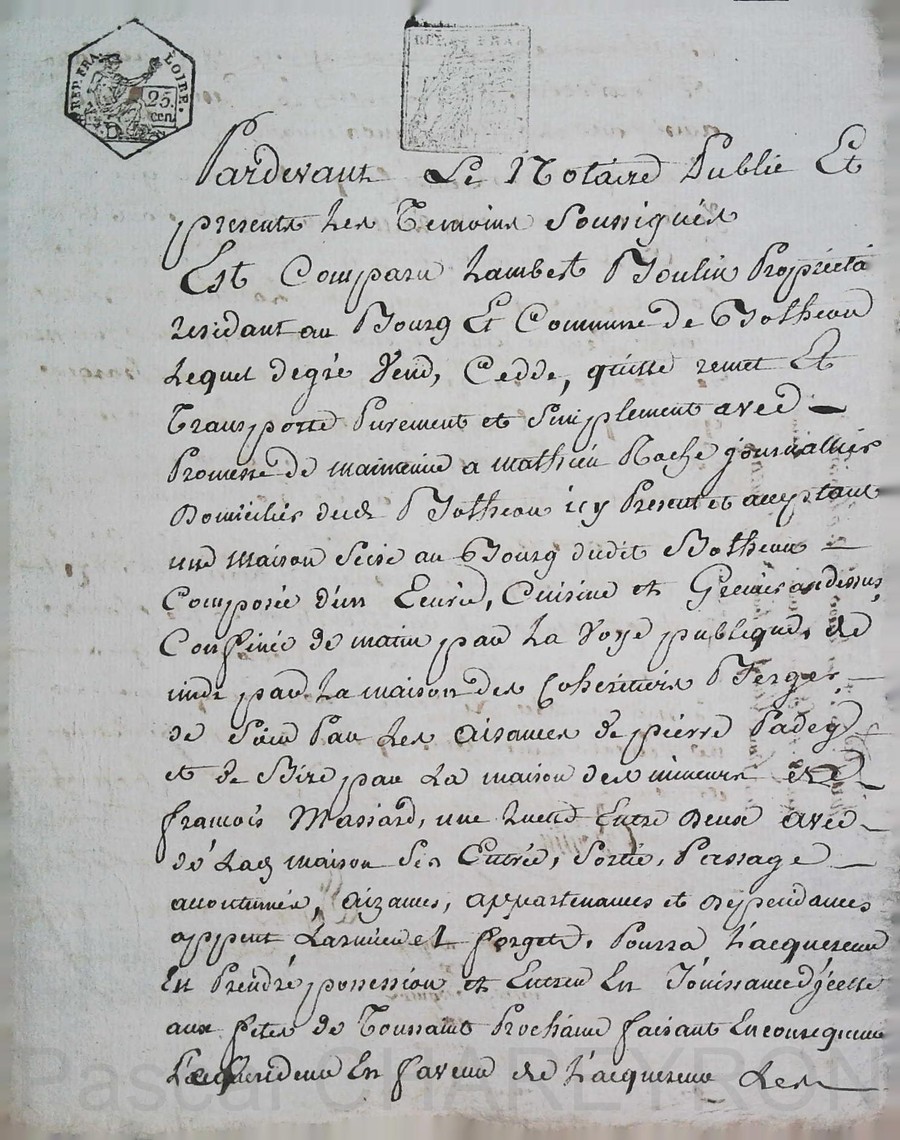 REP. FRA. LOIRE.
25. cen.
REP. FRA.
Pardevant Le Notaire Public Et
presents Les Temoins Soussignés
Est Comparu Lambert Moulin Propriéta
residant au Bourg Et Commune de Botheon
Lequel degré Vend, Cedde, quitte remet Et
Transporte Purement et Simplement avec
Promesse de maintenir a mathieu Roche journallier
Domicilié dud Botheon icy Present et acceptant
une Maison Scise au Bourg dudit Botheon
Composée d'un Ecurie, Cuisine et Grenier audessus
Confinée de matin par La Voye publique, de
midi par La maison des Coheritiers Verger
de Soir Par Les Aisances de pierre Padey
et de Bize par La maison des mineurs de
francois Massard, une Entre deux avec
de Lad maison Ses Entrée, Sortie, Passage
accoutumée, aizances, appartenances et dependances
Larmier et forget. Pourra L'acquereur
En Prendre possession et Entrer En Jouissance d'jcelle
aux fetes de Toussaint Prochaine faisant En consequence
En faveur de L'acquereur Les
Pascal CHAREYRON